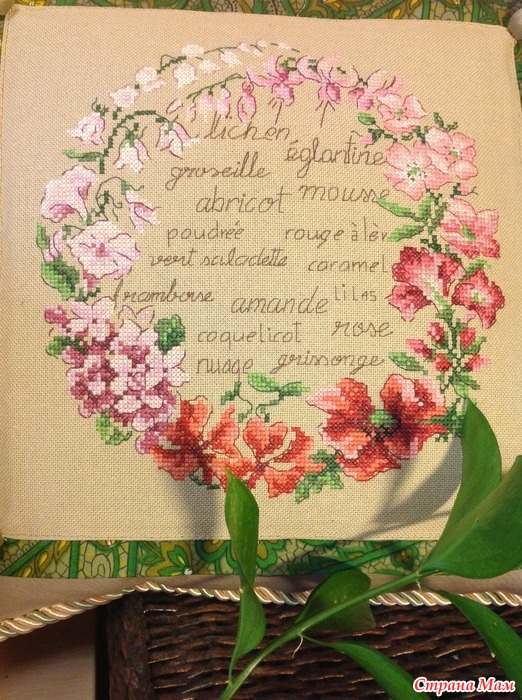 lichen
groseille églantine
abricot mousse
poudrée rouge à lèv
vert saladette caramel
framboise amande lilas
coquelicot rose
nuage grissonge
Страна Мам